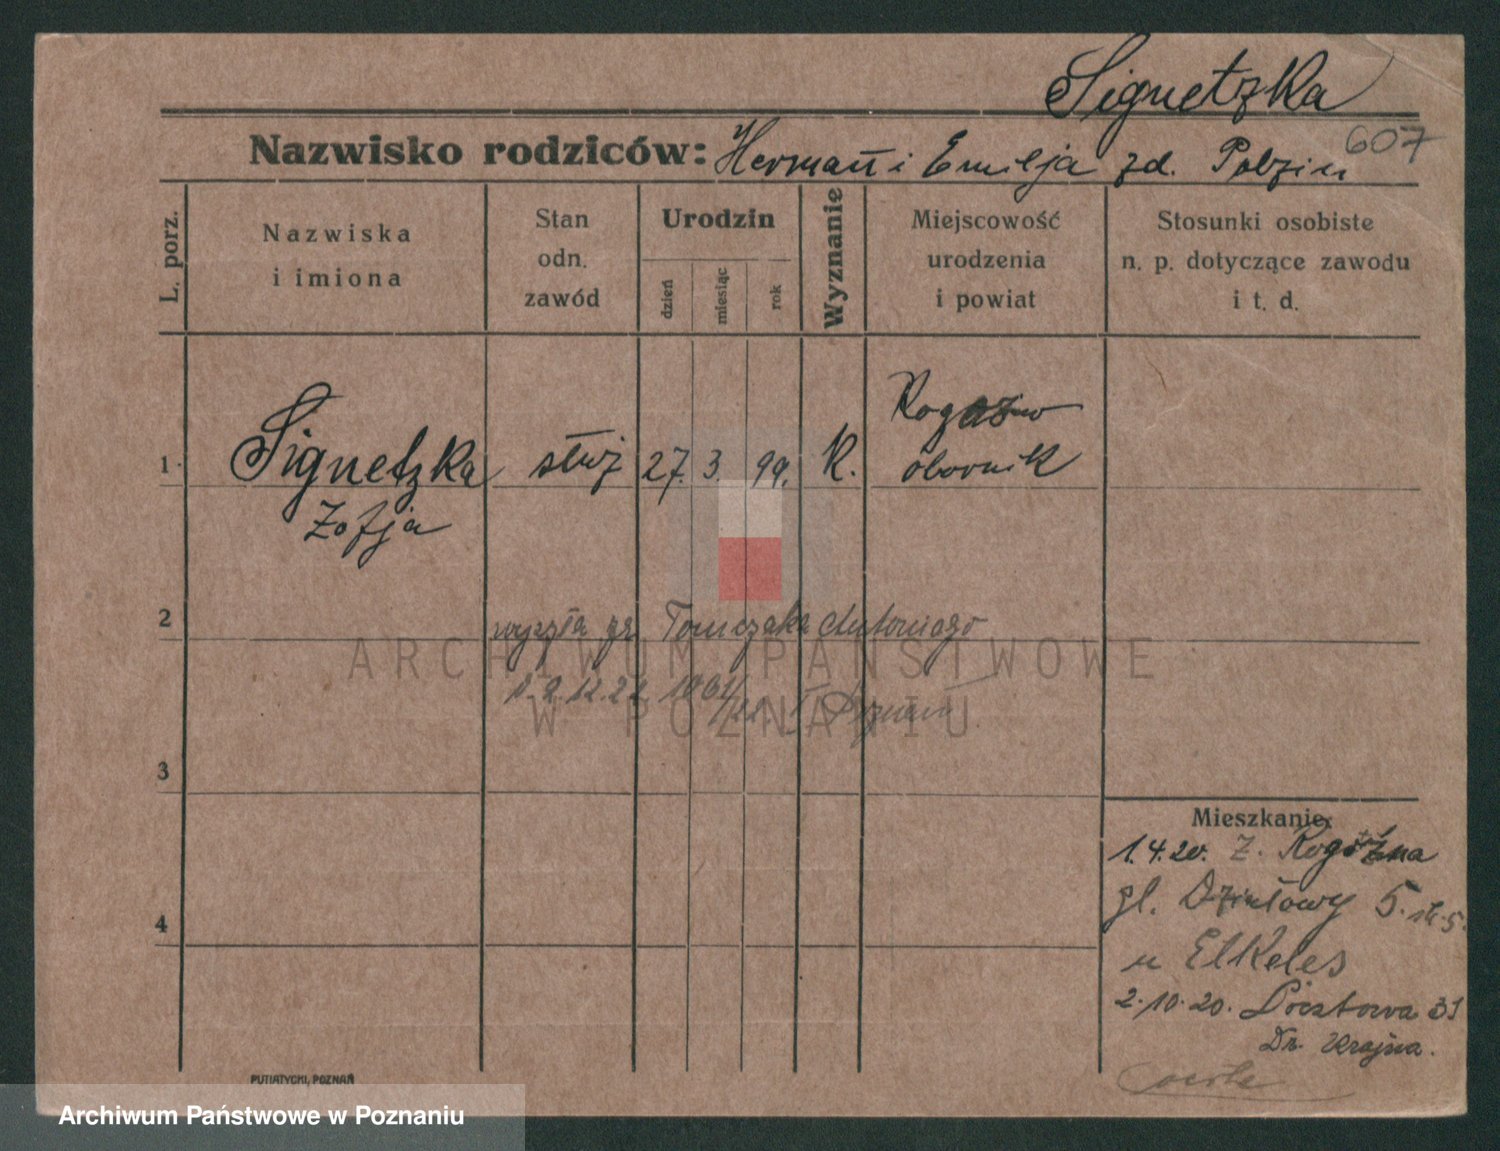 Signetzka
607
Nazwisko rodziców: Hermann i Emilja zd. Polzin
L. porz.
Nazwiska
i imiona
Stan
odn.
zawód
Urodzin
dzień
miesiąc
rok
Wyznanie
Miejscowość
urodzenia
i powiat
Stosunki osobiste
n. p. dotyczące zawodu
i t. d.
1 Signetzka służ 27. 3. 99. K. Rogoźno
Zofja obornik
2 wyszła za Tomczaka Antoniego
d. 2.12.22 1061/22 Poznań
3
4
Mieszkanie:
1.4.20. z. Rogoźna
pl. Działowy 5.
u Elkeles
2.10.20. Pocztowa 31
Dr. Krajna.
PUTIATYCKI, POZNAŃ
ARCHIWUM PAŃSTWOWE
W POZNANIU
Archiwum Państwowe w Poznaniu